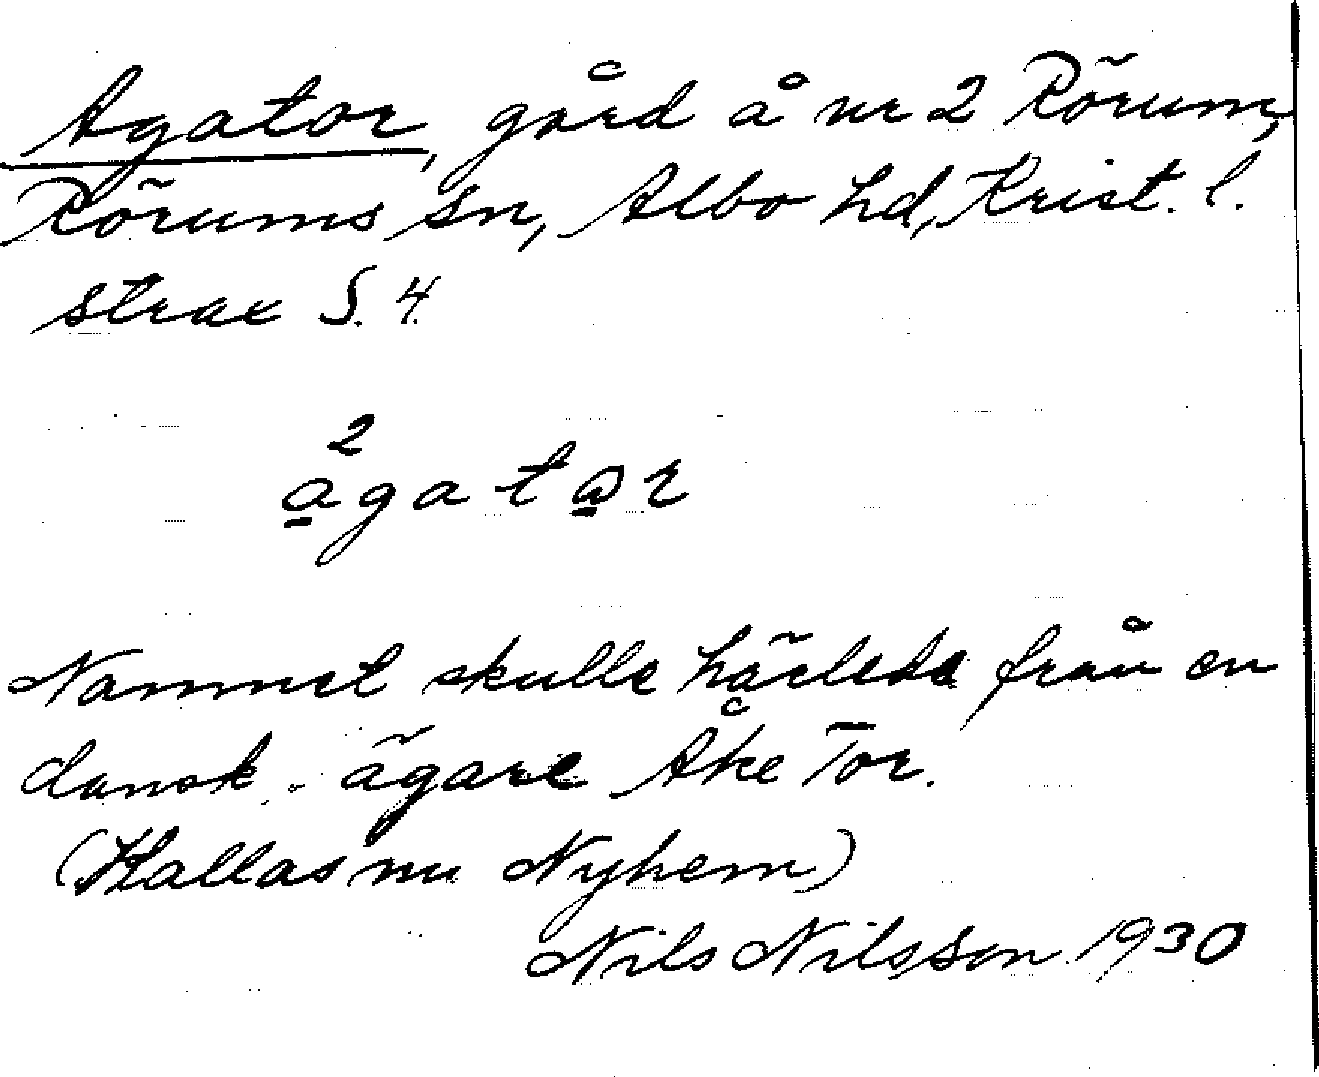 Agator, gård å nr 2 Rörum,
Rörums sn, Albo hd, Krist. l.
strax S. 4.
2
agatar
Namnet skulle härleda från en
dansk ägare Åke Tor.
(Kallas nu Nyhem)
Nils Nilsson 1930